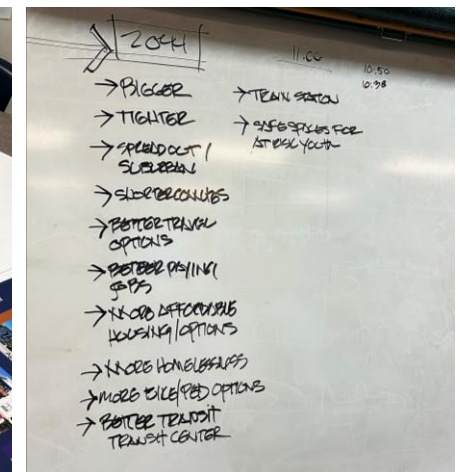 2044
11:00
10:50
10:38
→ BIGGER
→ TIGHTER
→ SPREAD OUT /
SUBURBAN
→ SHORTER COMMUTES
→ BETTER TRAVEL
OPTIONS
→ BETTER PAYING
JOBS
→ MORE AFFORDABLE
HOUSING/OPTIONS
→ MORE HOMELESSNESS
→ MORE BIKE/PED OPTIONS
→ BETTER TRANSIT
TRANSIT CENTER
→ TRAIN STATION
→ SAFE SPACES FOR
AT RISK YOUTH